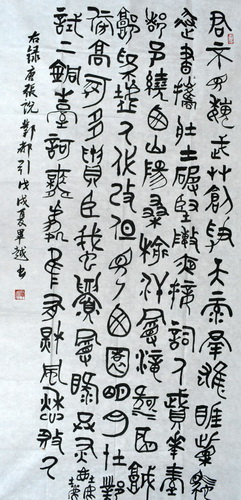 君不見魏武艸創爭天祿羣雄睚眦相馳
逐晝攜壯士破堅陣夜接詞人賦華屋
都邑繞西山陽桑榆汗漫漳河曲城
郭爲虛人代改但見西園明月在鄴
傍高冢多貴臣蛾眉曼睩共灰塵
試上銅臺歌舞處唯有秋風愁殺人
右錄唐張說鄴都引戊戌夏畢越書